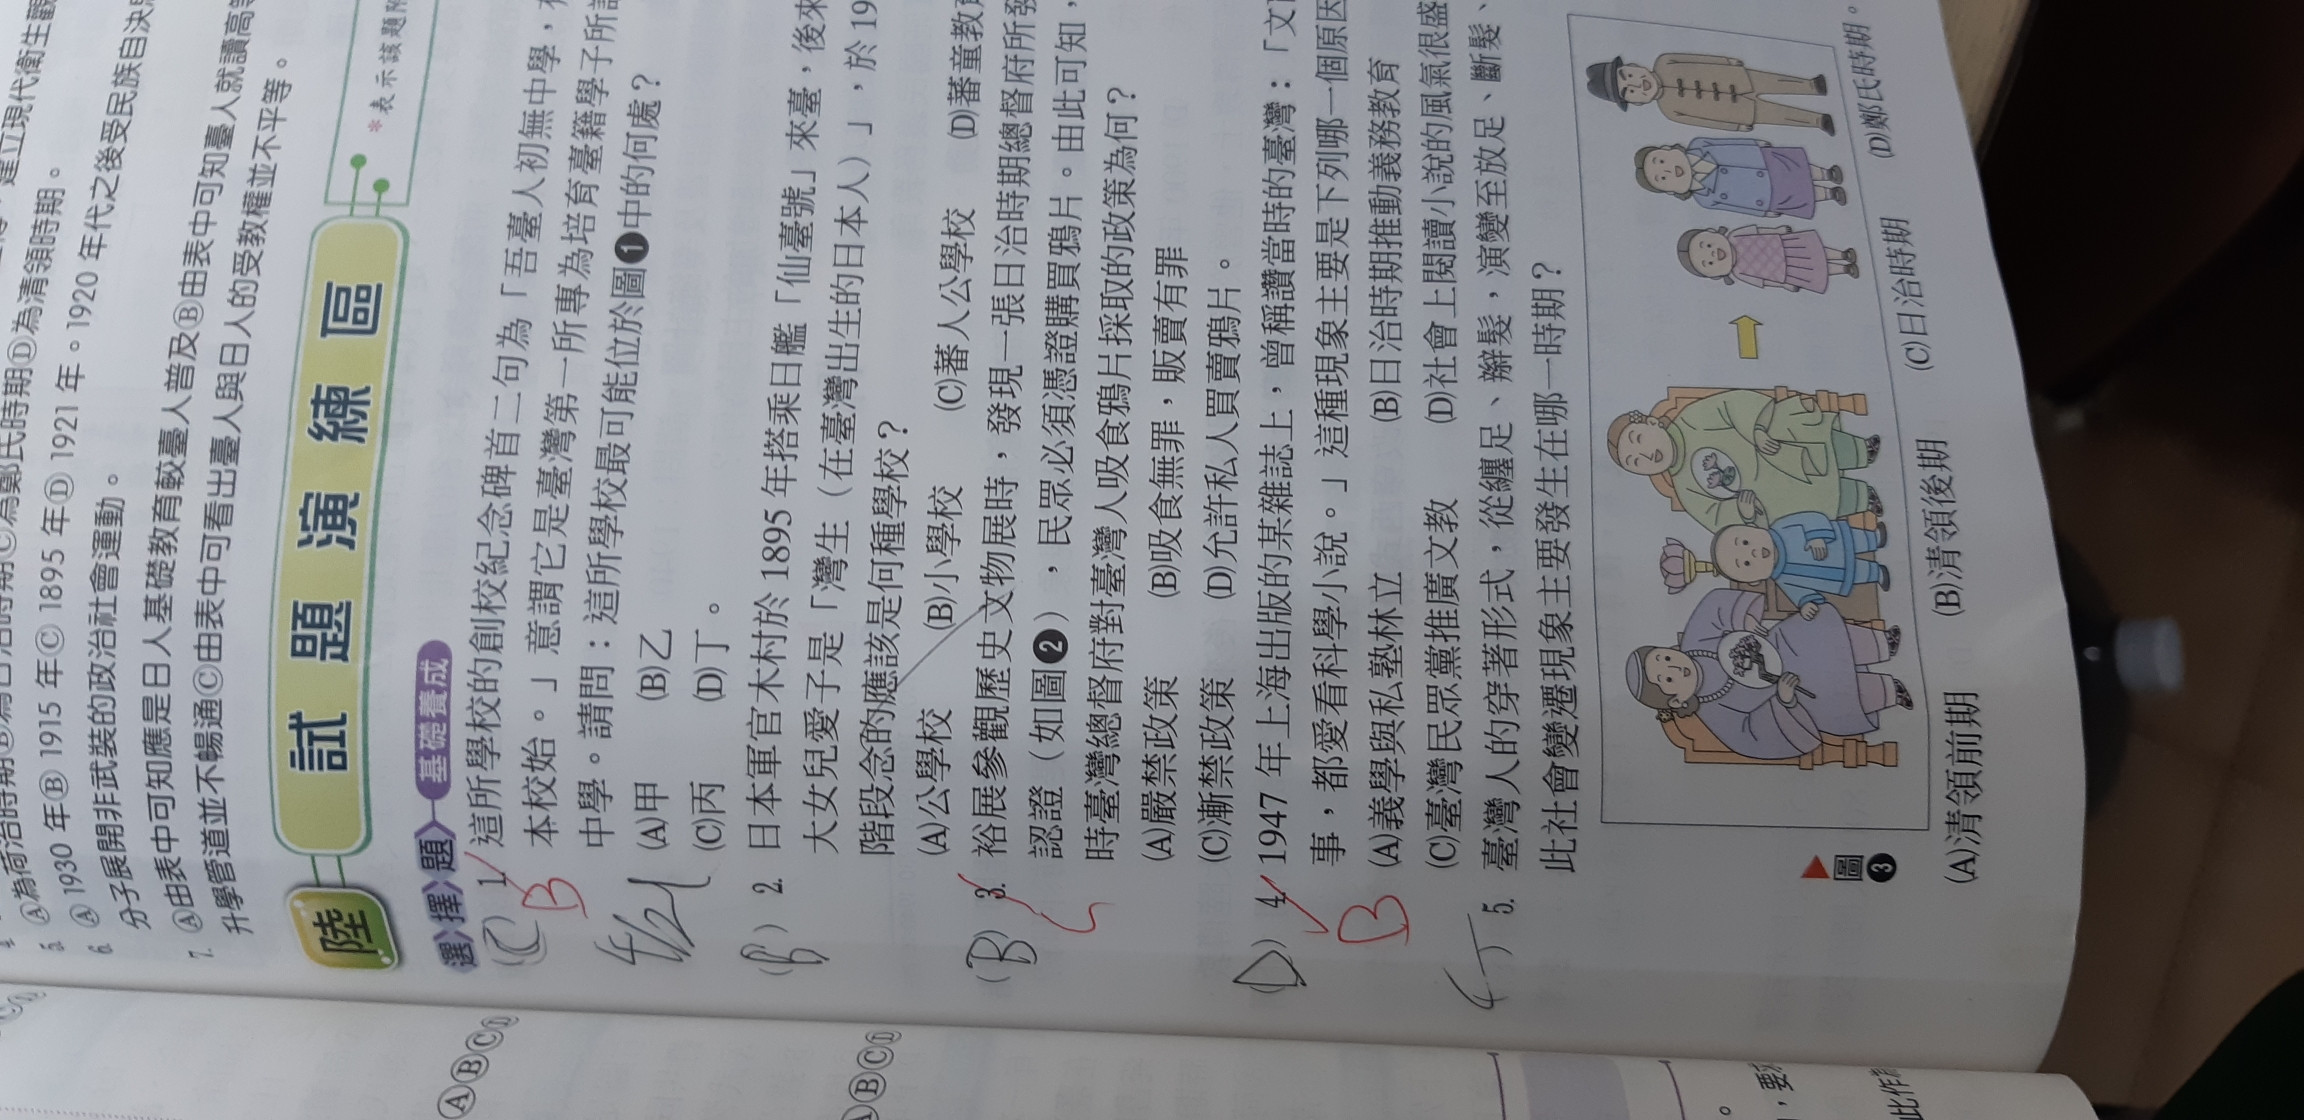 為荷治時期Ⓑ為日治時期Ⓒ為鄭氏時期Ⓓ為清領時期。
5. Ⓐ 1930 年Ⓑ 1915 年Ⓒ 1895 年Ⓓ 1921 年。1920 年代之後受民族自決
6. 分子展開非武裝的政治社會運動。
7. Ⓐ由表中可知應是日人基礎教育較臺人普及Ⓑ由表中可知臺人就讀高等
升學管道並不暢通Ⓒ由表中可看出臺人與日人的受教權並不平等。
陸 試題演練區
＊表示該題附
選擇題 基礎養成
(C) 1. 這所學校的創校紀念碑首二句為「吾臺人初無中學，有
B
本校始。」意謂它是臺灣第一所專為培育臺籍學子所設
中學。請問：這所學校最可能位於圖❶中的何處？
(A)甲 (B)乙
(C)丙 (D)丁。
(B) 2. 日本軍官木村於 1895 年搭乘日艦「仙臺號」來臺，後來
大女兒愛子是「灣生（在臺灣出生的日本人）」，於 19
階段念的應該是何種學校？
(A)公學校 (B)小學校 (C)蕃人公學校 (D)蕃童教育
(B) 3. 裕展參觀歷史文物展時，發現一張日治時期總督府所發
認證（如圖❷），民眾必須憑證購買鴉片。由此可知，
時臺灣總督府對臺灣人吸食鴉片採取的政策為何？
(A)嚴禁政策 (B)吸食無罪，販賣有罪
(C)漸禁政策 (D)允許私人買賣鴉片。
(D) 4. 1947 年上海出版的某雜誌上，曾稱讚當時的臺灣：「文
B
事，都愛看科學小說。」這種現象主要是下列哪一個原因
(A)義學與私塾林立 (B)日治時期推動義務教育
(C)臺灣民眾黨推廣文教 (D)社會上閱讀小說的風氣很盛
5. 臺灣人的穿著形式，從纏足、辮髮，演變至放足、斷髮、
此社會變遷現象主要發生在哪一時期？
圖❸
(A)清領前期 (B)清領後期 (C)日治時期 (D)鄭氏時期。